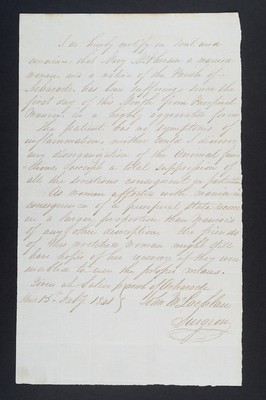 I do hereby certify on soul and
conscience that Mary a married
woman, and a native of the Parish of
has been suffering since the
first day of this Month from Puerperal
Mania, in a highly aggravated form
The patient has no symptoms of
inflammation, neither could I discover
any disorganization of the Animal func
-tions except a total suppression of
all the secretions consequent on parturition
As women affected with mania in
consequence of a puerperal state recover
in a larger proportion than maniacs
of any other description the friends
of this wretched woman might still
have hopes of her recovery if they were
enabled to use the proper means.
Given at
this 15th Feby 1841
John
Surgeon